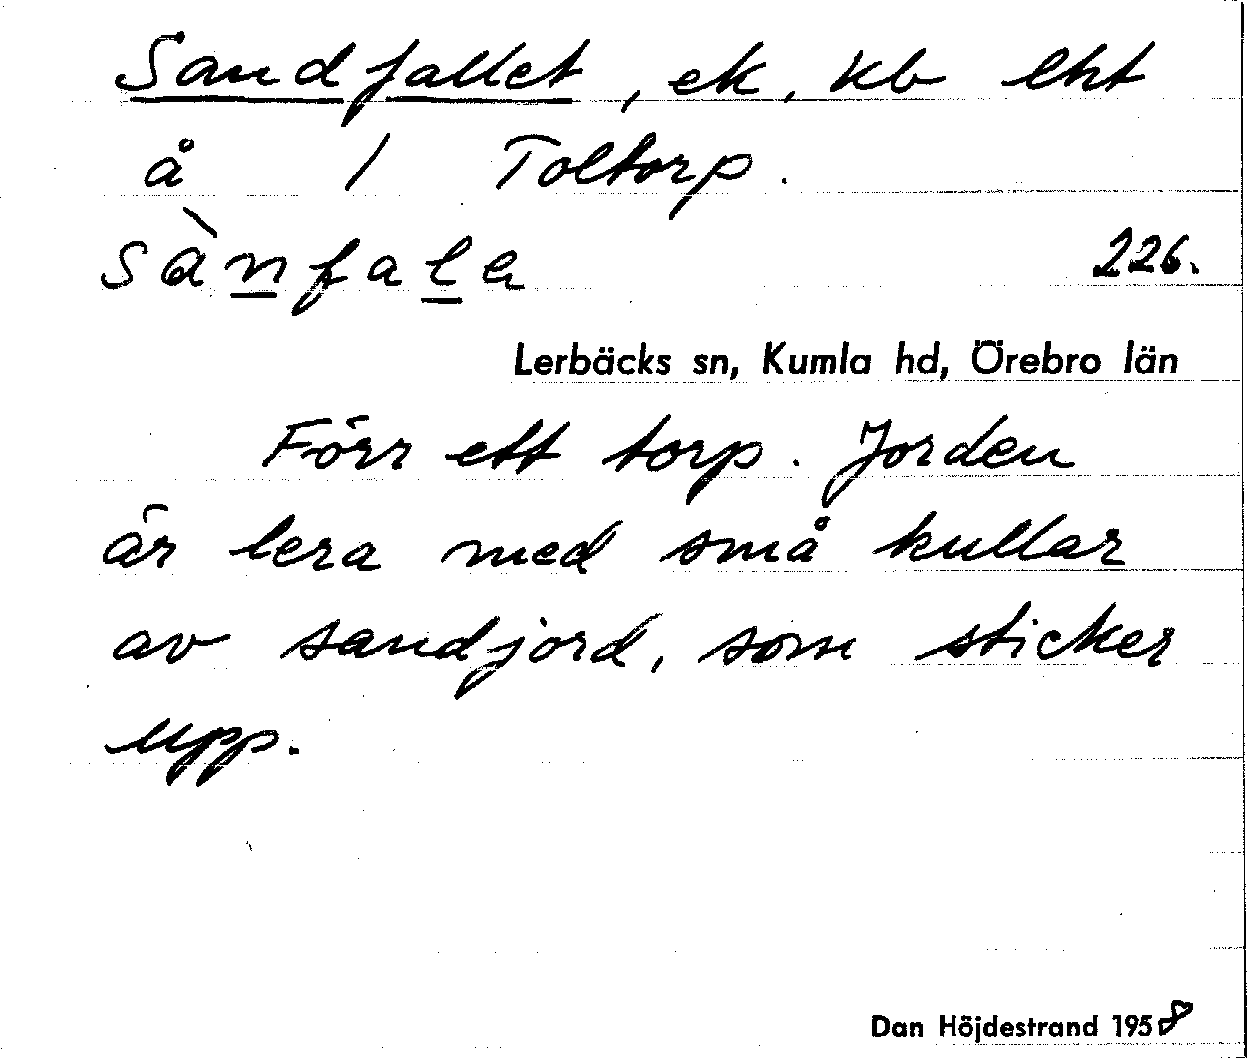 Sandfallet, ek, kb lht
å 1 Toltorp.
sàn̲fal̲a 226.
Lerbäcks sn, Kumla hd, Örebro län
Förr ett torp. Jorden
är lera med små kullar
av sandjord, som sticker
upp.
Dan Höjdestrand 1958